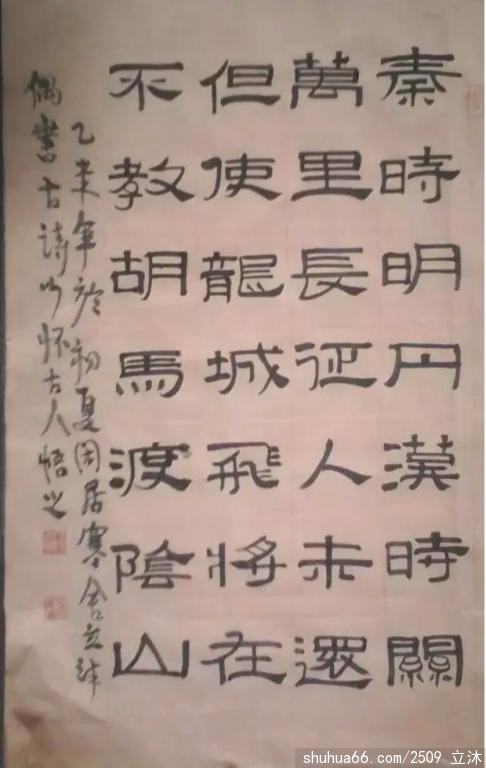 秦時明月漢時關
萬里長征人未還
但使龍城飛將在
不教胡馬渡陰山
乙未年於初夏閑居寒舍立沐
偶書古詩以怀古人悟之
shuhua66.com/2509 立沐